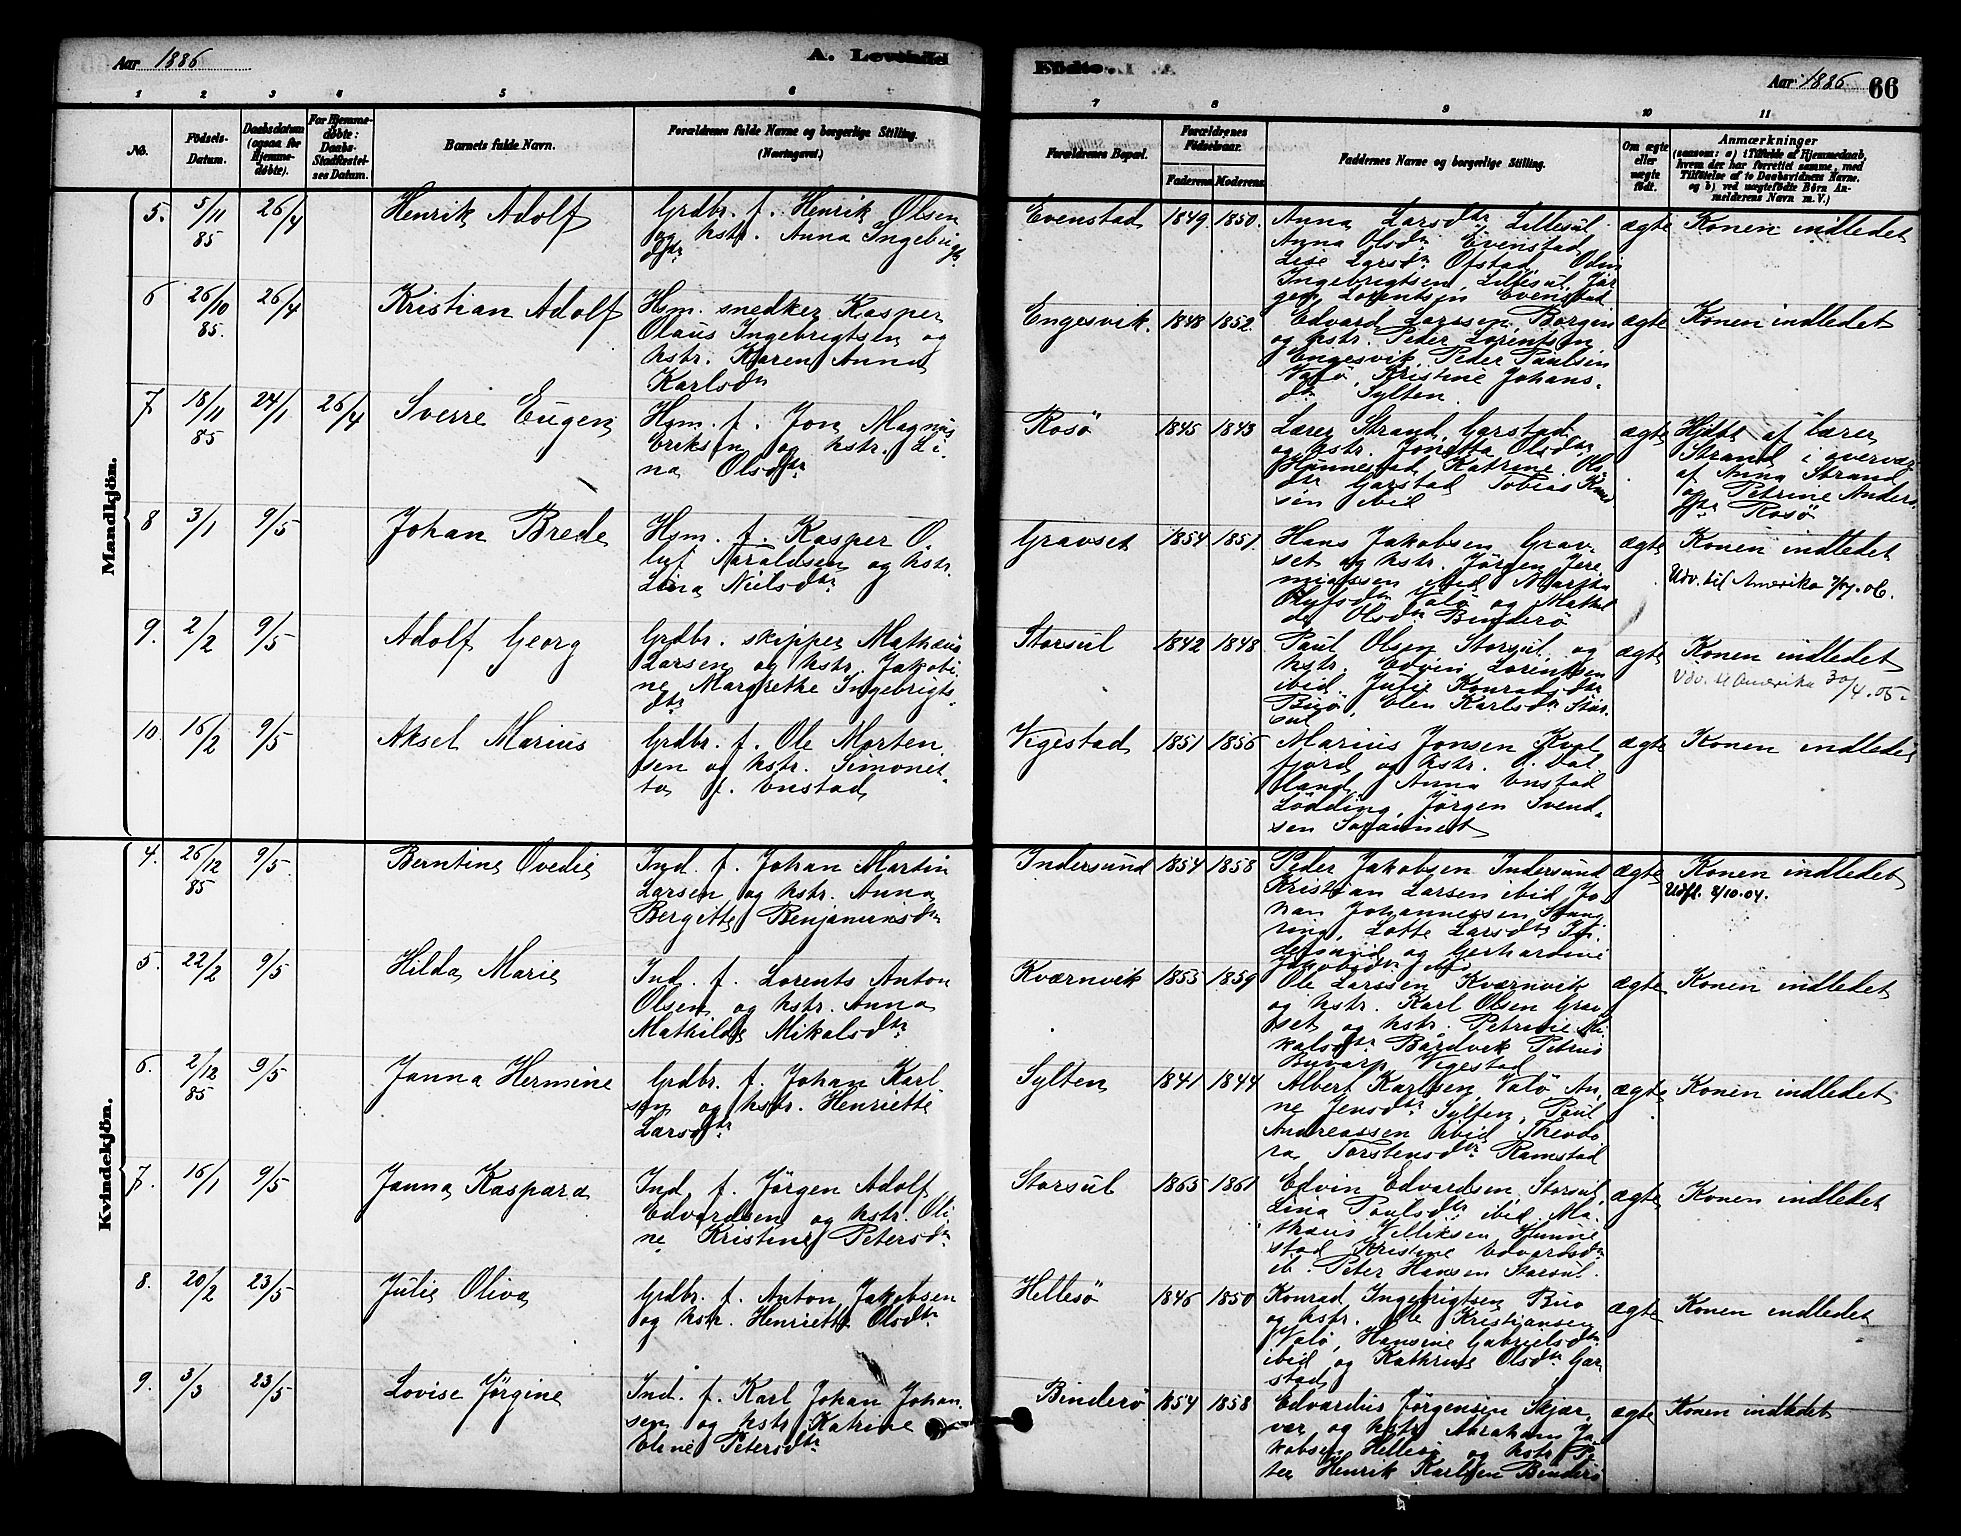 Aar 1886
A. Levende
Fødte.
Aar 1886 66
1 2 3 4 5 6 7 8 9 10 11
No.
Fødsels-
Datum.
Daabsdatum
(ogsaa for
Hjemme-
døbte).
For Hjemme-
døbte:
Daabs-
Stadfæstel-
ses Datum.
Barnets fulde Navn.
Forældrenes fulde Navne og borgerlige Stilling.
(Næringsvei.)
Forældrenes Bopæl.
Forældrenes
Fødselsaar.
Faderens Moderens
Faddernes Navne og borgerlige Stilling.
Om ægte
eller
uægte
født.
Anmærkninger
(saasom: a) i Tilfælde af Hjemmedaab,
hvem der har forrettet samme, med
Tilføielse af to Daabsvidners Navne.
og b) ved uægtefødte Børn An-
melderens Navn m. V.)
Mandkjøn.
5. 5/11 85 26/4 Henrik Adolf
Grdbr. f. Henrik Olsen
og hstr. Anna Ingebrigts
dtr
Evenstad 1849 1850
Anna Larsdtr Lillesul
Anna Olsdtr Evenstad
Lise Larsdtr Ofstad
Ingebrigtsen, Lillesul, Jør
gen Lorentsen Evenstad
ægte Konen indledet
6 26/10 85. 26/4 Kristian Adolf
Hsm. snedker Kasper
Olaus Ingebrigtsen og
hstr. Karen Anna
Karlsdtr
Engesvik. 1848 1852
Edvard Larssen, Borgin
og hstr. Peder Lorentsen
Engesvik, Peder Paulsen
Valø, Kristine Johans-
dtr Sylten.
ægte Konen indledet
7 18/11 85 24/1 26/4 Sverre Eugen
Hsm. f. Jon Magnus
Eriksen og hstr. Li-
na Olsdtr
Rosø 1845 1843
Lærer Strand, Garstad
og hstr. Jonetta Olsdtr
Hunnestad, Katrine Ols
dtr Garstad Tobias
sen ibid
ægte Hjdbt af Lærer
Strand i overvær
af Anna Strand
og Petrine Anders
dtr Rosø
8 3/1 9/5 Johan Brede
Hsm. f. Kasper O-
luf Haraldsen og hstr.
Lina Nielsdtr
Gravset 1854 1851
Hans Jakobsen Grav-
set og hstr. Jørgen Jere-
miassen ibid Martha
Olufsdtr Valø og Mathil
de Olsdtr Binderø
ægte Konen indledet
Udv. til Amerika 7/7.06.
9. 2/2 9/5 Adolf Georg
Grdbr. skipper Mathæus
Larsen og hstr. Jakobi-
ne Margrethe Ingebrigts-
dtr
Storsul 1842 1848
Paul Olsen Storsul og
hstr. Edvin Lorentsen
ibid. Julie Konradsdtr
Buø, Elen Karlsdtr Stor-
sul
ægte Konen indledet
Udv. til Amerika 20/4.05.
10. 16/2 9/5 Aksel Marius
Grdbr. f. Ole Morten
sen og hstr. Simonet-
ta f. Enstad
Vigestad 1851 1856
Marius Jonsen Kval
fjord og hstr. O. Dal
land, Anna Enstad
Lødding, Jørgen Svend-
sen
ægte Konen indledet
Kvindekjøn.
4. 26/12 85 9/5. Berntine Ovedie
Ind. f. Johan Martin
Larsen og hstr. Anna
Bergitte Benjaminsdtr
Indersund 1854 1858
Peder Jakobsen Indersund
Kristian Larsen ibid Jo-
han Johannessen Stang
ring, Lotte Larsdtr In
dersund og Gerhardine
Jakobsdtr ibid
ægte Konen indledet
Udfl. 8/10.04.
5. 22/2 9/5 Hilda Marie
Ind. f. Lorents Anton
Olsen og hstr. Anna
Mathilde Mikalsdtr
Kværnvik 1853 1859
Ole Larssen Kværnvik
og hstr. Karl Olsen Grav
set og hstr. Petrine Mi
kalsdtr Bardvik Petrus
Buvarp Vigestad
ægte Konen indledet
6. 2/12 85 9/5 Janna Hermine
Grdbr. f. Johan Karl-
sen og hstr. Henriette
Larsdtr
Sylten 1841 1844
Albert Karlsen, Valø An-
ne Jensdtr Sylten, Paul
Andreassen ibid Theodo
ra Torstensdtr Ramstad
ægte Konen indledet
7. 16/1 9/5 Janna Kaspara
Ind. f. Jørgen Adolf
Edvardsen og hstr. Oli-
ne Kristine Petersdtr
Storsul 1865 1861
Edvin Edvardsen, Storsul,
Lina Paulsdtr ibid Ma-
thæus Villiksen, Hunne
stad Kristine Edvardsdtr
ib. Peter Hansen Storsul.
ægte Konen indledet
8. 20/2 23/5 Julie Oliva
Grdbr. f. Anton Jakobsen
og hstr. Henriette Olsdtr
Hellesø 1846 1850
Konrad Ingebrigtsen Buø
og hstr. Ole Kristiansen
Valø, Hansine Gabrielsdtr
ibid og Kathrine Olsdtr Gar
stad
ægte Konen indledet
9. 3/3 23/5 Lovise Jørgine
Ind. f. Karl Johan Johan
sen og hstr Katrine
Eline Petersdtr
Binderø 1854 1858
Edvardus Jørgensen Skjær-
vær og hstr Abraham Ja
kobsen Hellesø og hstr Pe-
ter Henrik Karlsen Binderø
ægte Konen indledet